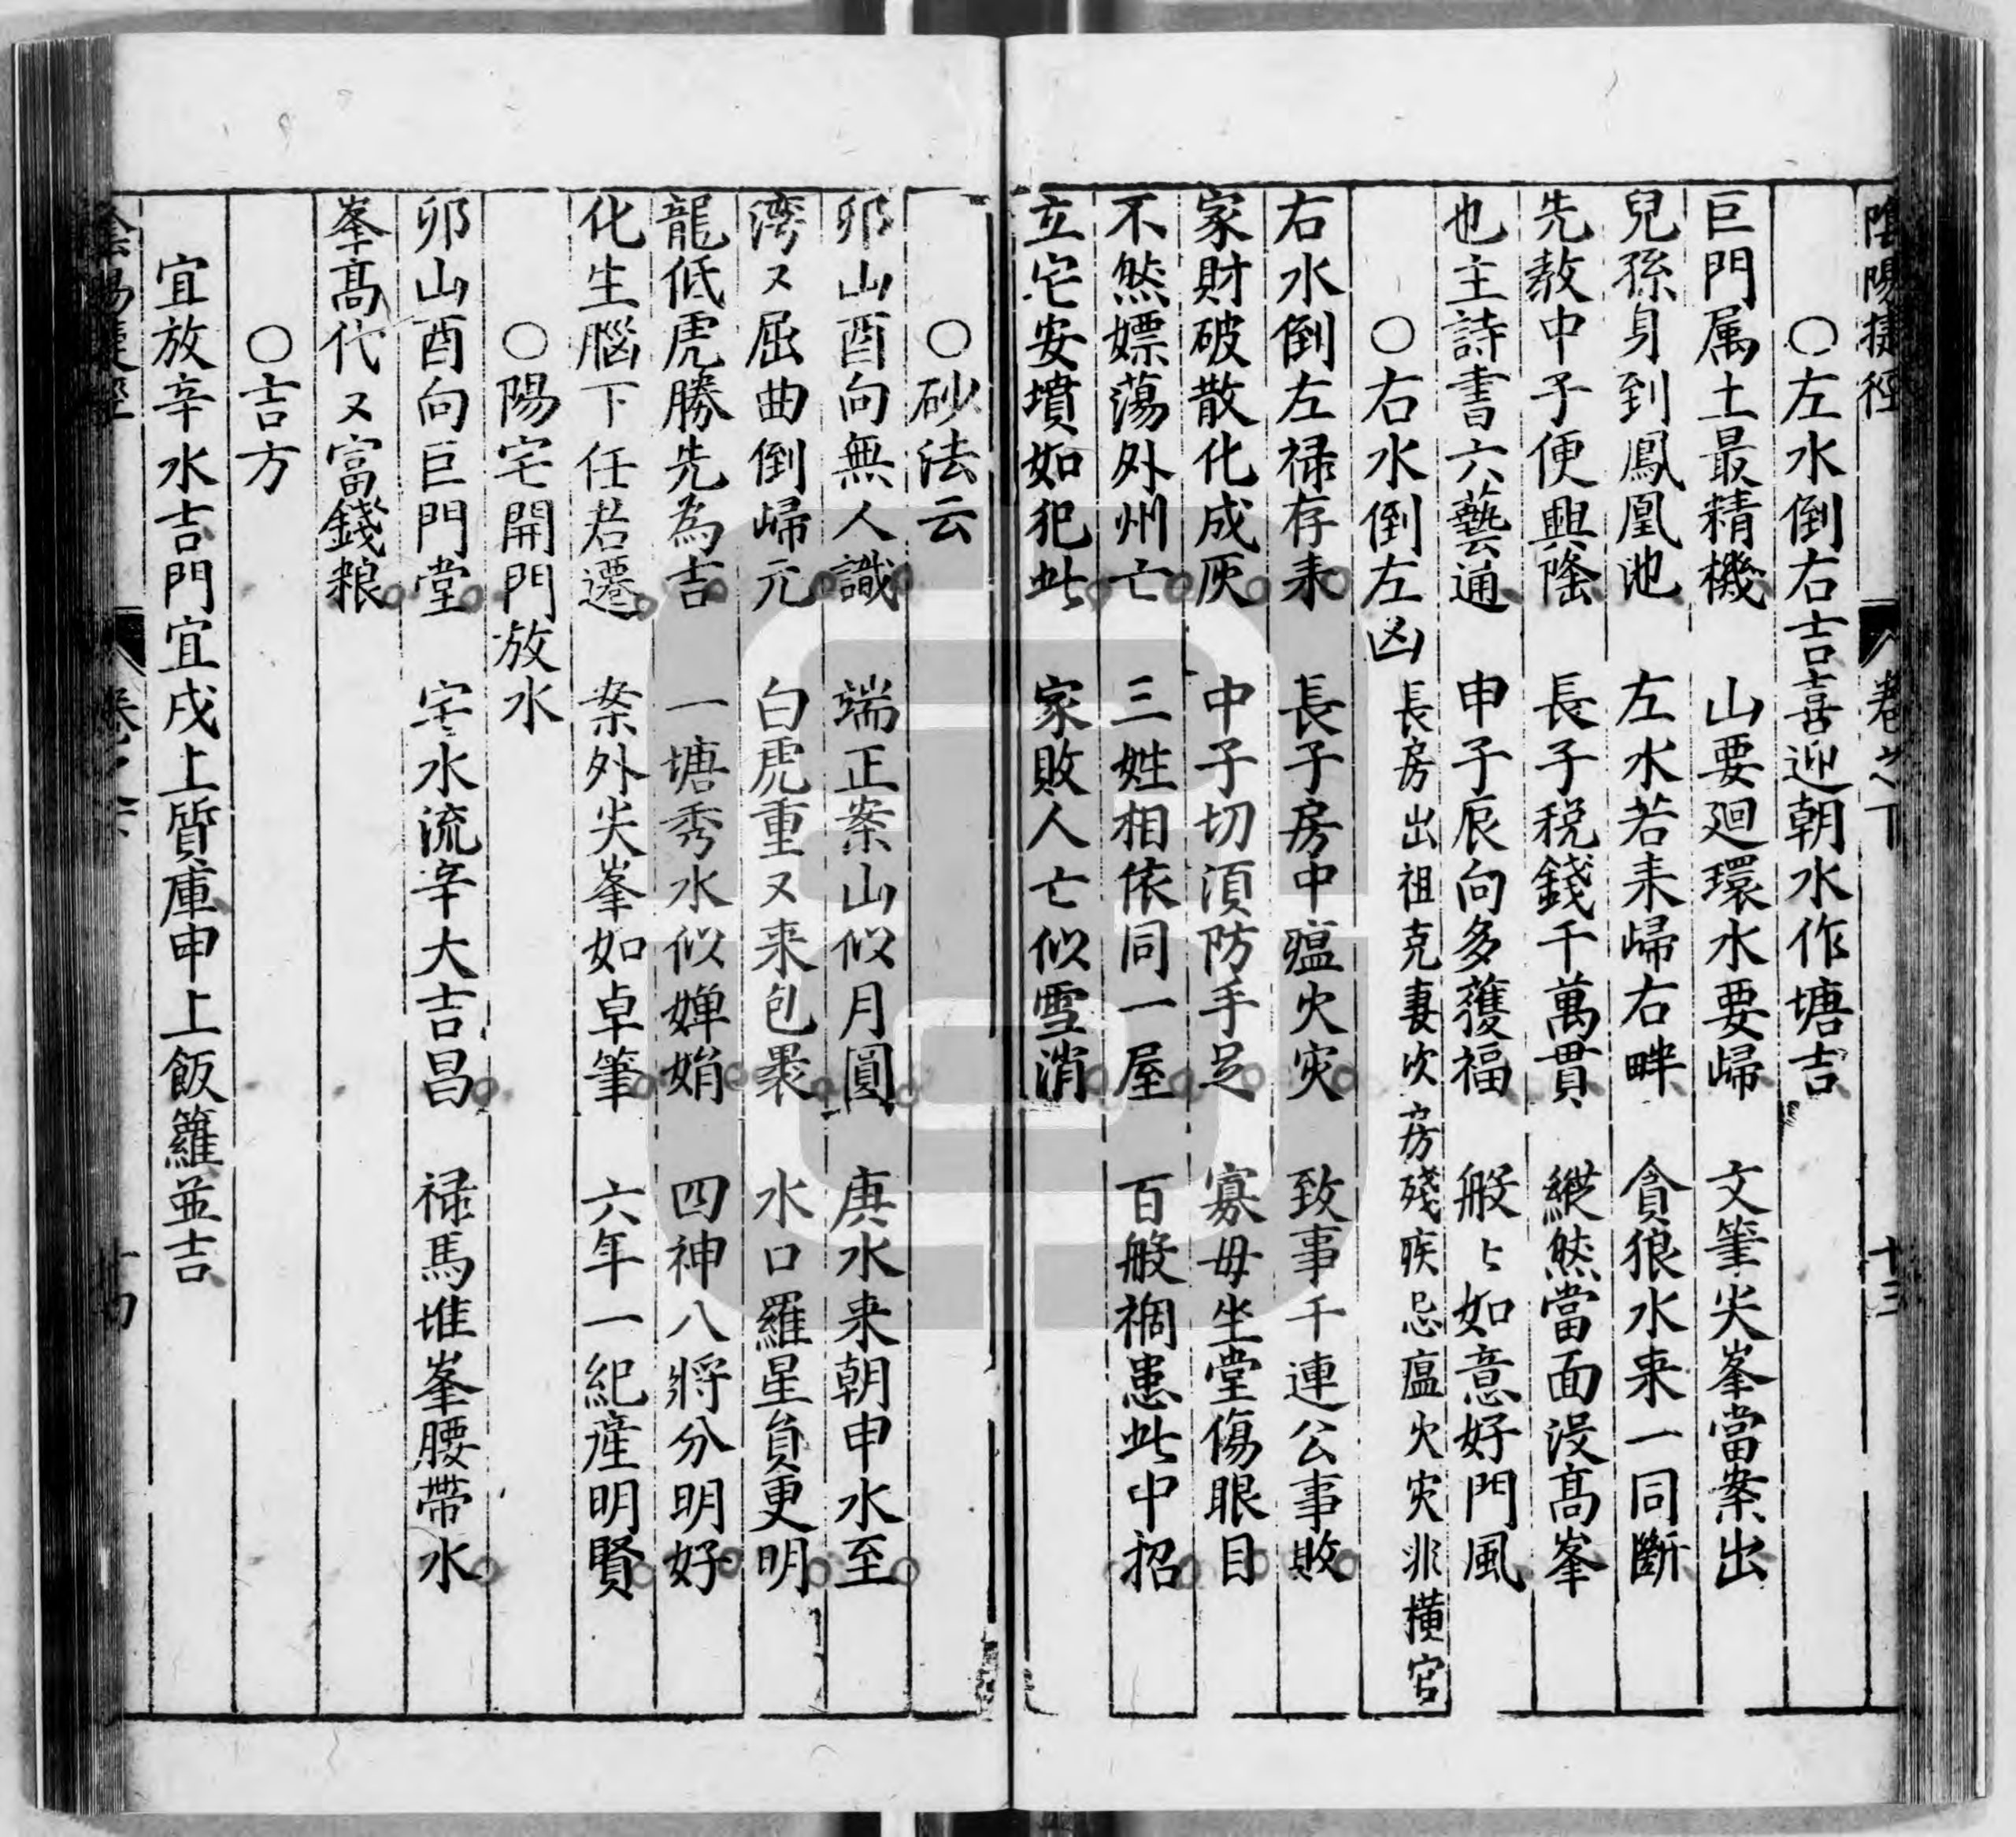 陰陽捷徑 卷之下 十三
○左水倒右吉喜迎朝水作塘吉
巨門属土最精機 山要廻環水要歸 文筆尖峯當案出
兒孫身到鳳凰池 左水若来歸右畔 貪狼水来一同斷
先教中子便興隆 長子税錢千萬貫 縱然當面没髙峯
也主詩書六藝通 申子辰向多獲福 般〻如意好門風
○右水倒左凶 長房出祖克妻次房殘疾忌瘟火灾非横官
右水倒左禄存来 長子房中瘟火灾 致事千連公事敗
家財破散化成灰 中子切須防手足 寡母坐堂傷眼目
不然嫖蕩外州亡 三姓相依同一屋 百般禍患此中招
立宅安墳如犯此 家敗人亡似雪消
○砂法云
卯山酉向無人識 端正案山似月圓 庚水来朝申水至
湾又屈曲倒歸元 白虎重又来包褁 水口羅星負更明
龍低虎勝先為吉 一塘秀水似嬋娟 四神八將分明好
化生腦下任君遷 案外尖峯如卓筆 六年一紀産明賢
○陽宅開門放水
卯山酉向巨門堂 宅水流辛大吉昌 禄馬堆峯腰帶水
峯髙代又富錢粮
○吉方
宜放辛水吉門宜戌上質庫申上飯籮並吉
陰陽捷徑 卷之下 十四